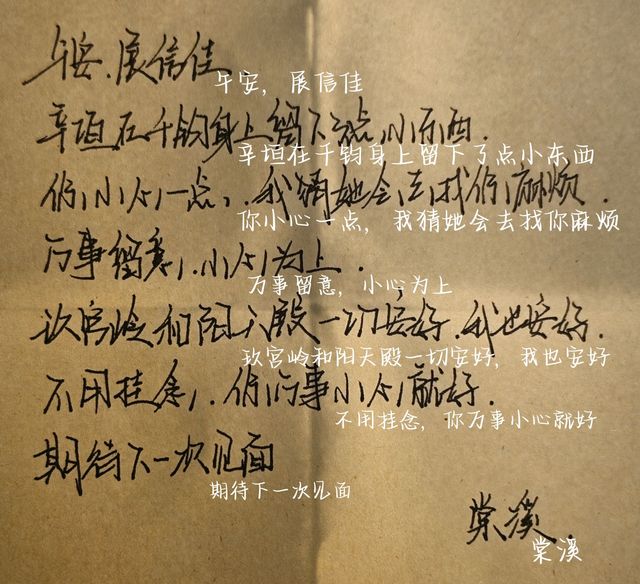 午安.展信佳
午安，展信佳
辛垣在千钧身上留下了点小东西.
辛垣在千钧身上留下了点小东西
你小心一点，.我猜她会去找你麻烦.
你小心一点，我猜她会去找你麻烦
万事留意，.小心为上.
万事留意，小心为上
玖宫岭和阳天殿一切安好.我也安好.
玖宫岭和阳天殿一切安好，我也安好
不用挂念，.你万事小心就好.
不用挂念，你万事小心就好
期待下一次见面
期待下一次见面
棠溪.
棠溪